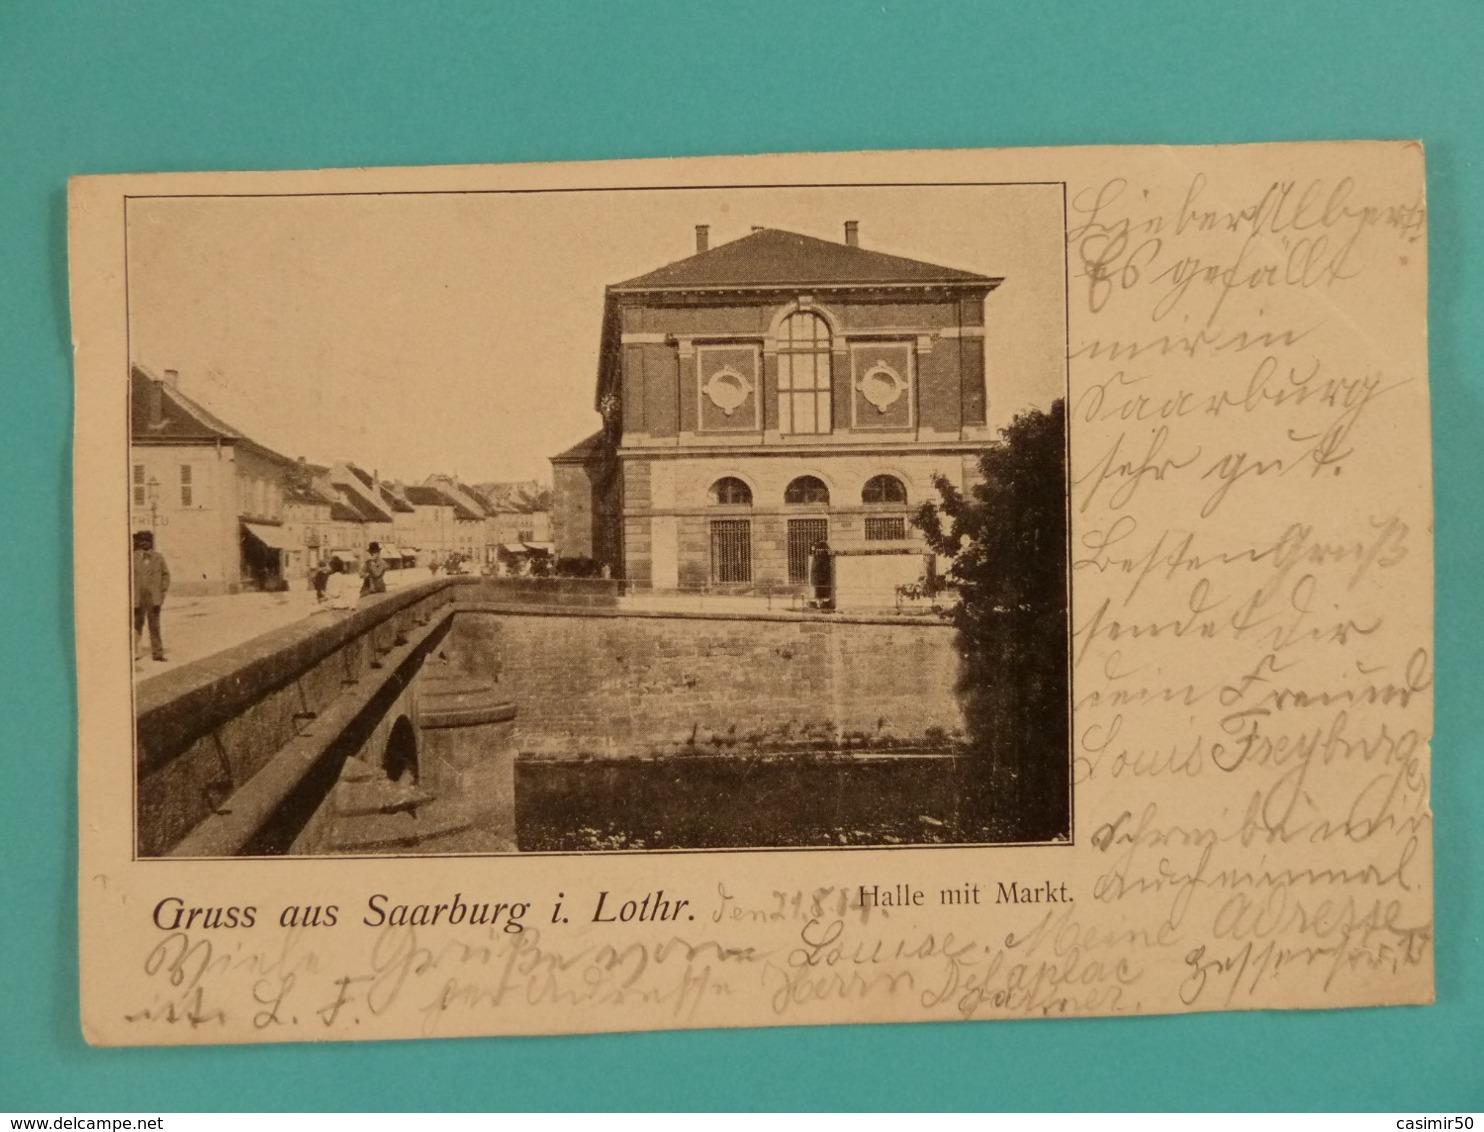 Lieber Albert!
Es gefällt
mir in
Saarburg
sehr gut.
Besten Gruß
sendet Dir
dein Freund
Louis Freyburg
schreibe mir
auch einmal.
Meine Adresse
ist. L. F.
per Adresse Herrn Delaplac
THIEU
Gruss aus Saarburg i. Lothr.
den 21.8
Halle mit Markt.
Viele Grüße von Louise.
http://www.delcampe.net
casimir50